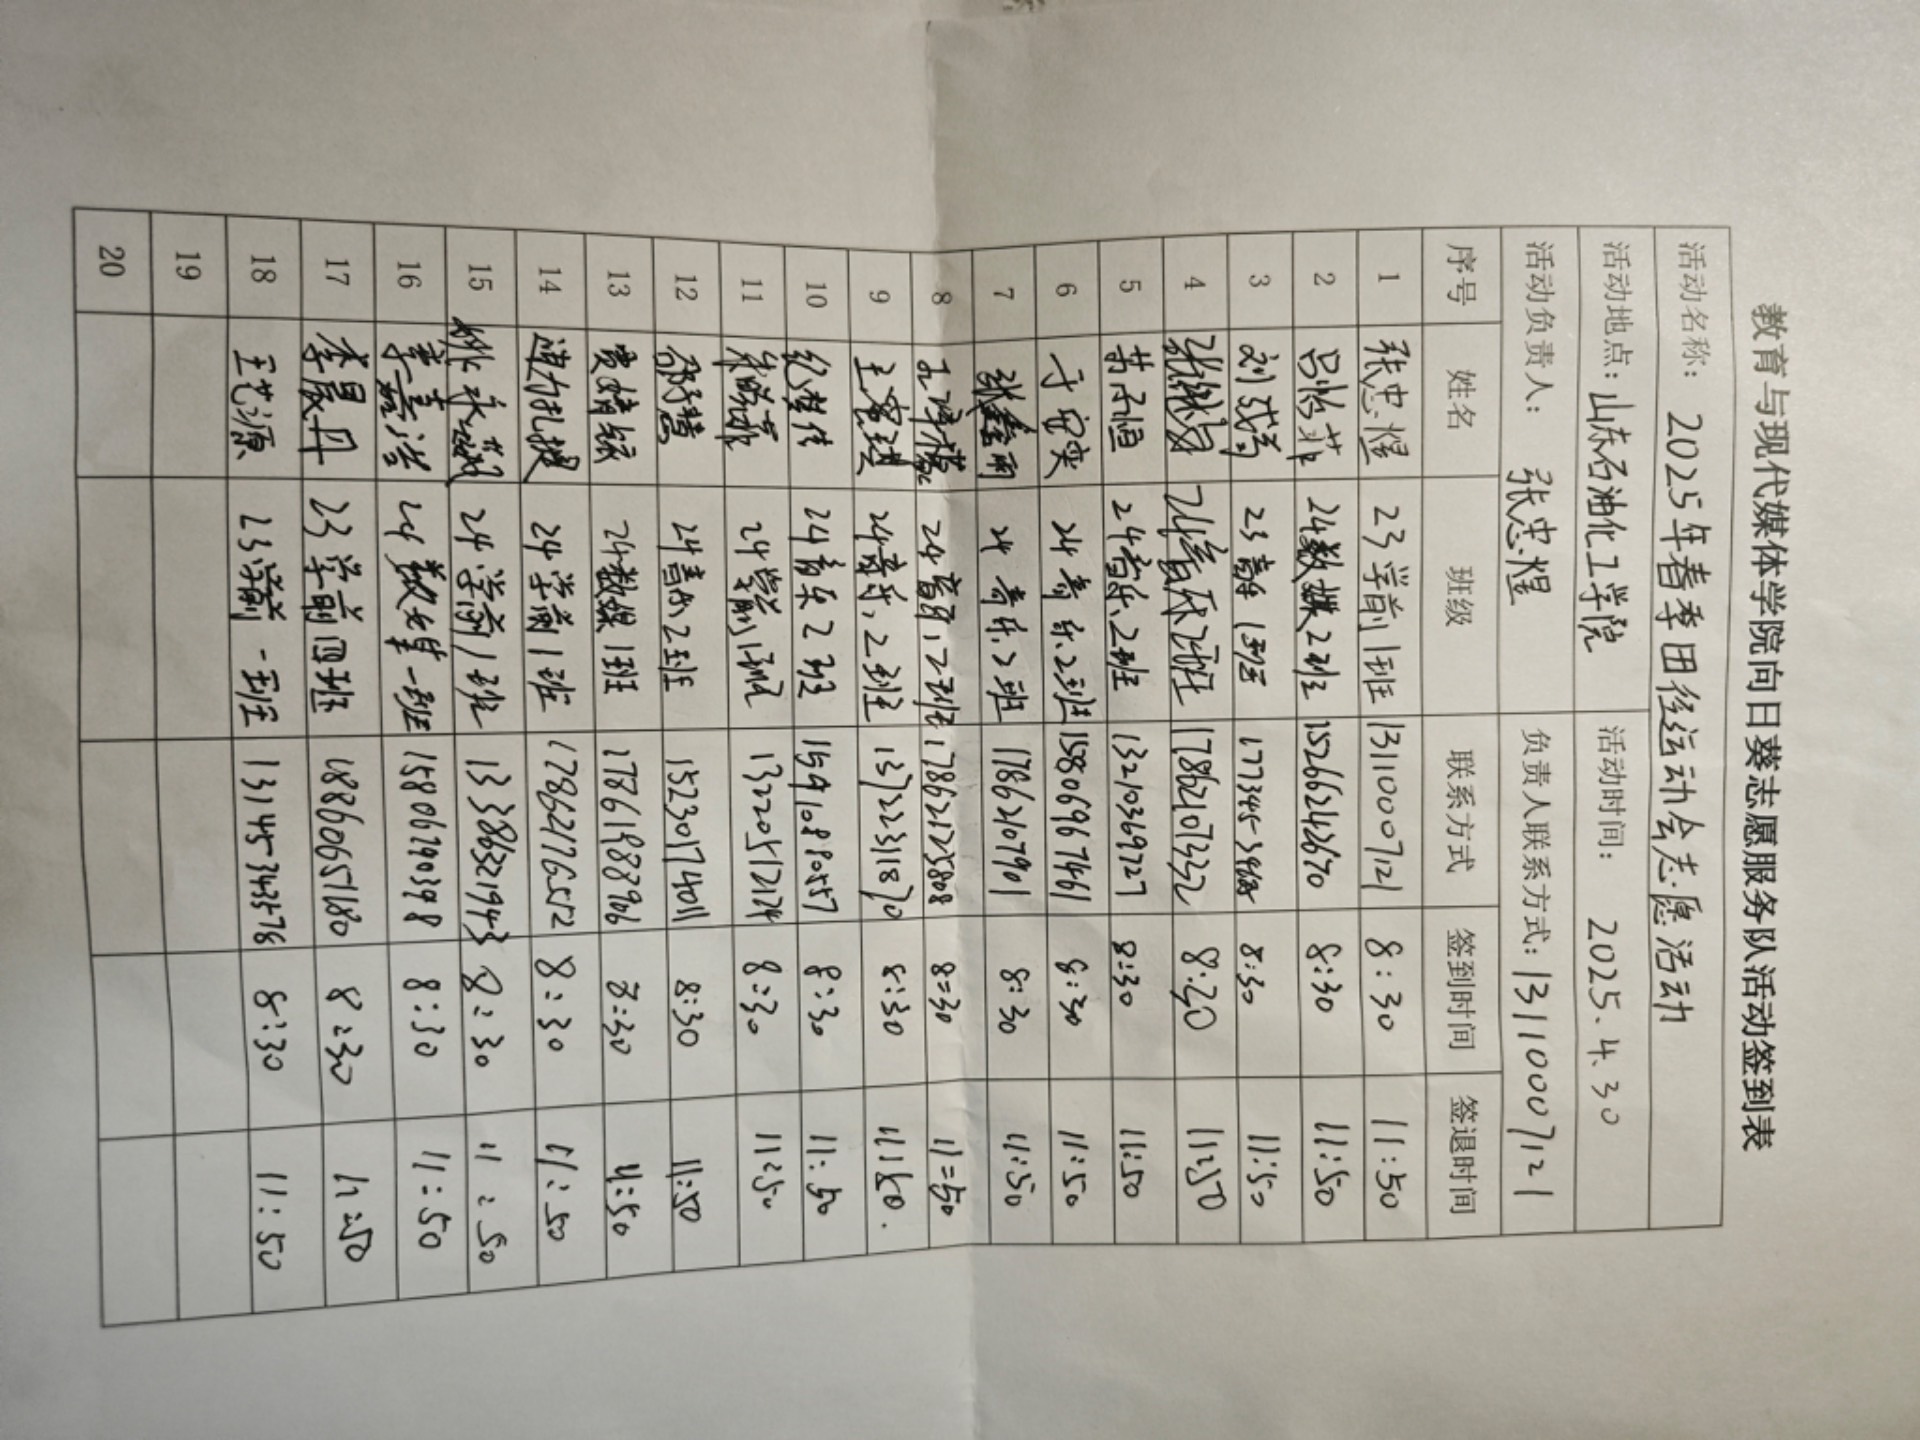 教育与现代媒体学院向日葵志愿服务队活动签到表
活动名称: 2025年春季田径运动会志愿活动
活动地点: 山东石油化工学院 活动时间: 2025.4.30
活动负责人: 张忠煜 负责人联系方式: 13110007121
序号 姓名 班级 联系方式 签到时间 签退时间
1 张忠煜 23学前1班 13110007121 8:30 11:50
2 24数媒2班 15266242670 8:30 11:50
3 23音乐1班 8:30 11:50
4 2班 17862107332 8:30 11:50
5 24音乐2班 13210369727 8:30 11:50
6 24音乐2班 15806967461 8:30 11:50
7 张鑫雨 24音乐2班 17862107901 8:30 11:50
8 24音乐2班 178621725808 8:30 11:50
9 24音乐2班 13722311870 8:30 11:50
10 24音乐2班 15910890557 8:30 11:50
11 24学前1班 13220512124 8:30 11:50
12 24音乐2班 15230174011 8:30 11:50
13 贾婧铱 24数媒1班 17861988966 8:30 11:50
14 24学前1班 17862176552 8:30 11:50
15 24学前1班 13386321943 8:30 11:50
16 李嘉浩 24数媒一班 15806790398 8:30 11:50
17 李晨丹 23学前四班 18860651180 8:30 11:50
18 王艺源 23学前一班 8:30 11:50
19
20